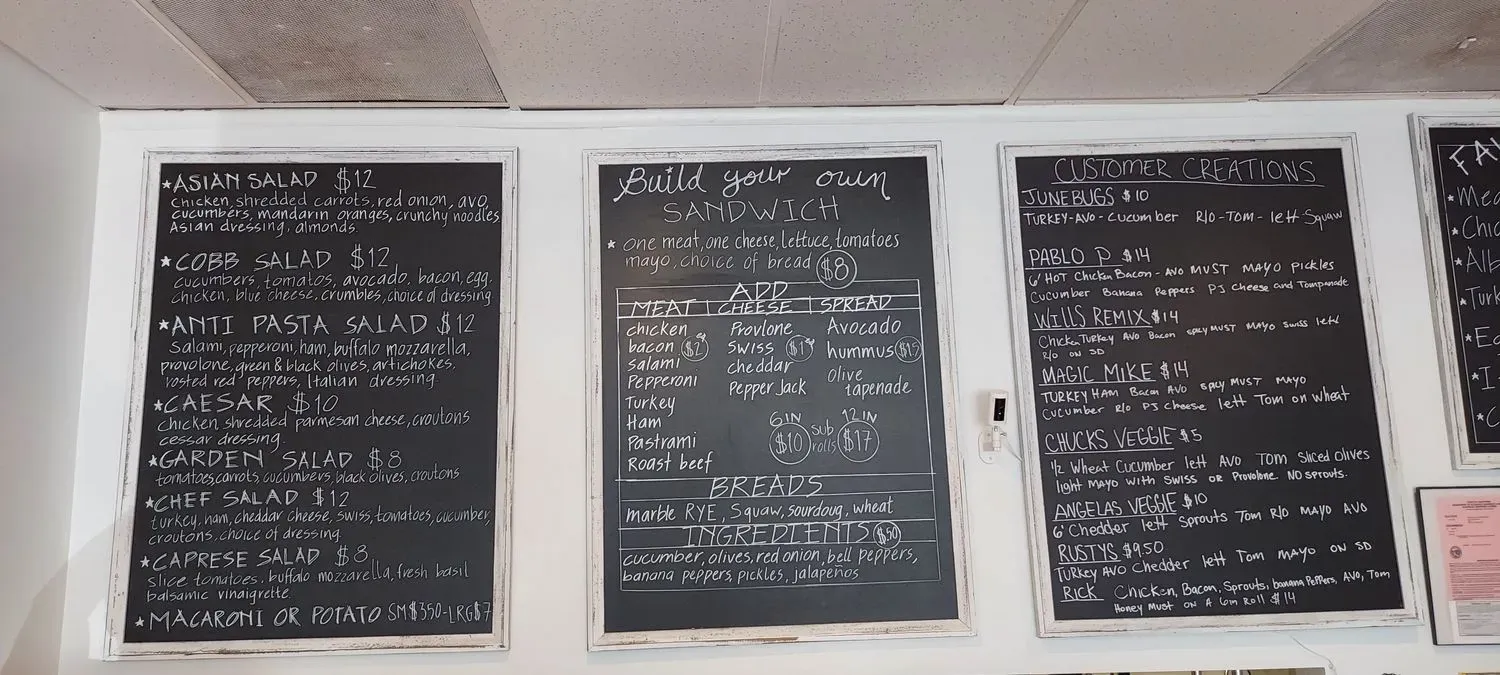 ★ASIAN SALAD $12
chicken, shredded carrots, red onion, avo,
cucumbers, mandarin oranges, crunchy noodles
Asian dressing, almonds.
★COBB SALAD $12
cucumbers, tomatos, avocado, bacon, egg,
chicken, blue cheese, crumbles, choice of dressing
★ANTI PASTA SALAD $12
Salami, pepperoni, ham, buffalo mozzarella,
provolone, green & black olives, artichokes,
rosted red peppers, Italian dressing.
★CAESAR $10
Chicken, shredded parmesan cheese, croutons
cessar dressing.
★GARDEN SALAD $8
tomatoes, carrots, cucumbers, black olives, croutons
★CHEF SALAD $12
turkey, ham, cheddar cheese, swiss, tomatoes, cucumber,
croutons, choice of dressing
★CAPRESE SALAD $8
Slice tomatoes, buffalo mozzarella, fresh basil
balsamic vinaigrette
★MACARONI OR POTATO SM$350-LRG$7
Build your own
SANDWICH
★ one meat, one cheese, lettuce, tomatoes
mayo, choice of bread $8
ADD
MEAT CHEESE SPREAD
chicken Provlone Avocado
bacon $2 Swiss $1 hummus $1.5
salami cheddar Olive
Pepperoni Pepper Jack tapenade
Turkey
Ham 6IN 12IN
Pastrami $10 sub rolls $17
Roast beef
BREADS
marble RYE, Squaw, sourdoug, wheat
INGREDIENTS $.50
cucumber, olives, red onion, bell peppers,
banana peppers, pickles, jalapeños
CUSTOMER CREATIONS
JUNEBUGS $10
TURKEY-AVO-Cucumber R/O-TOM-lett-Squaw
PABLO P $14
6" HOT Chicken Bacon - AVO MUST MAYO Pickles
Cucumber Banana Peppers PJ Cheese and Tompanade
WILLS REMIX $14
Chicken Turkey AVO Bacon spicy MUST MAYO Swiss lett
R/O ON SD
MAGIC MIKE $14
TURKEY HAM Bacon AVO spicy MUST MAYO
Cucumber R/O PJ Cheese lett Tom on wheat
CHUCKS VEGGIE $5
1/2 Wheat Cucumber lett AVO TOM Sliced olives
light MAYO with SWISS OR Provolone NO sprouts.
ANGELAS VEGGIE $10
6" Chedder lett Sprouts Tom R/O MAYO AVO
RUSTYS $9.50
TURKEY AVO Chedder lett Tom MAYO ON SD
RICK Chicken, Bacon, Sprouts, banana Peppers, AVO, Tom
Honey Must on A 6in Roll $14
FA
★Mea
★Chic
★Alb
★Turk
★Eg
★I
★C